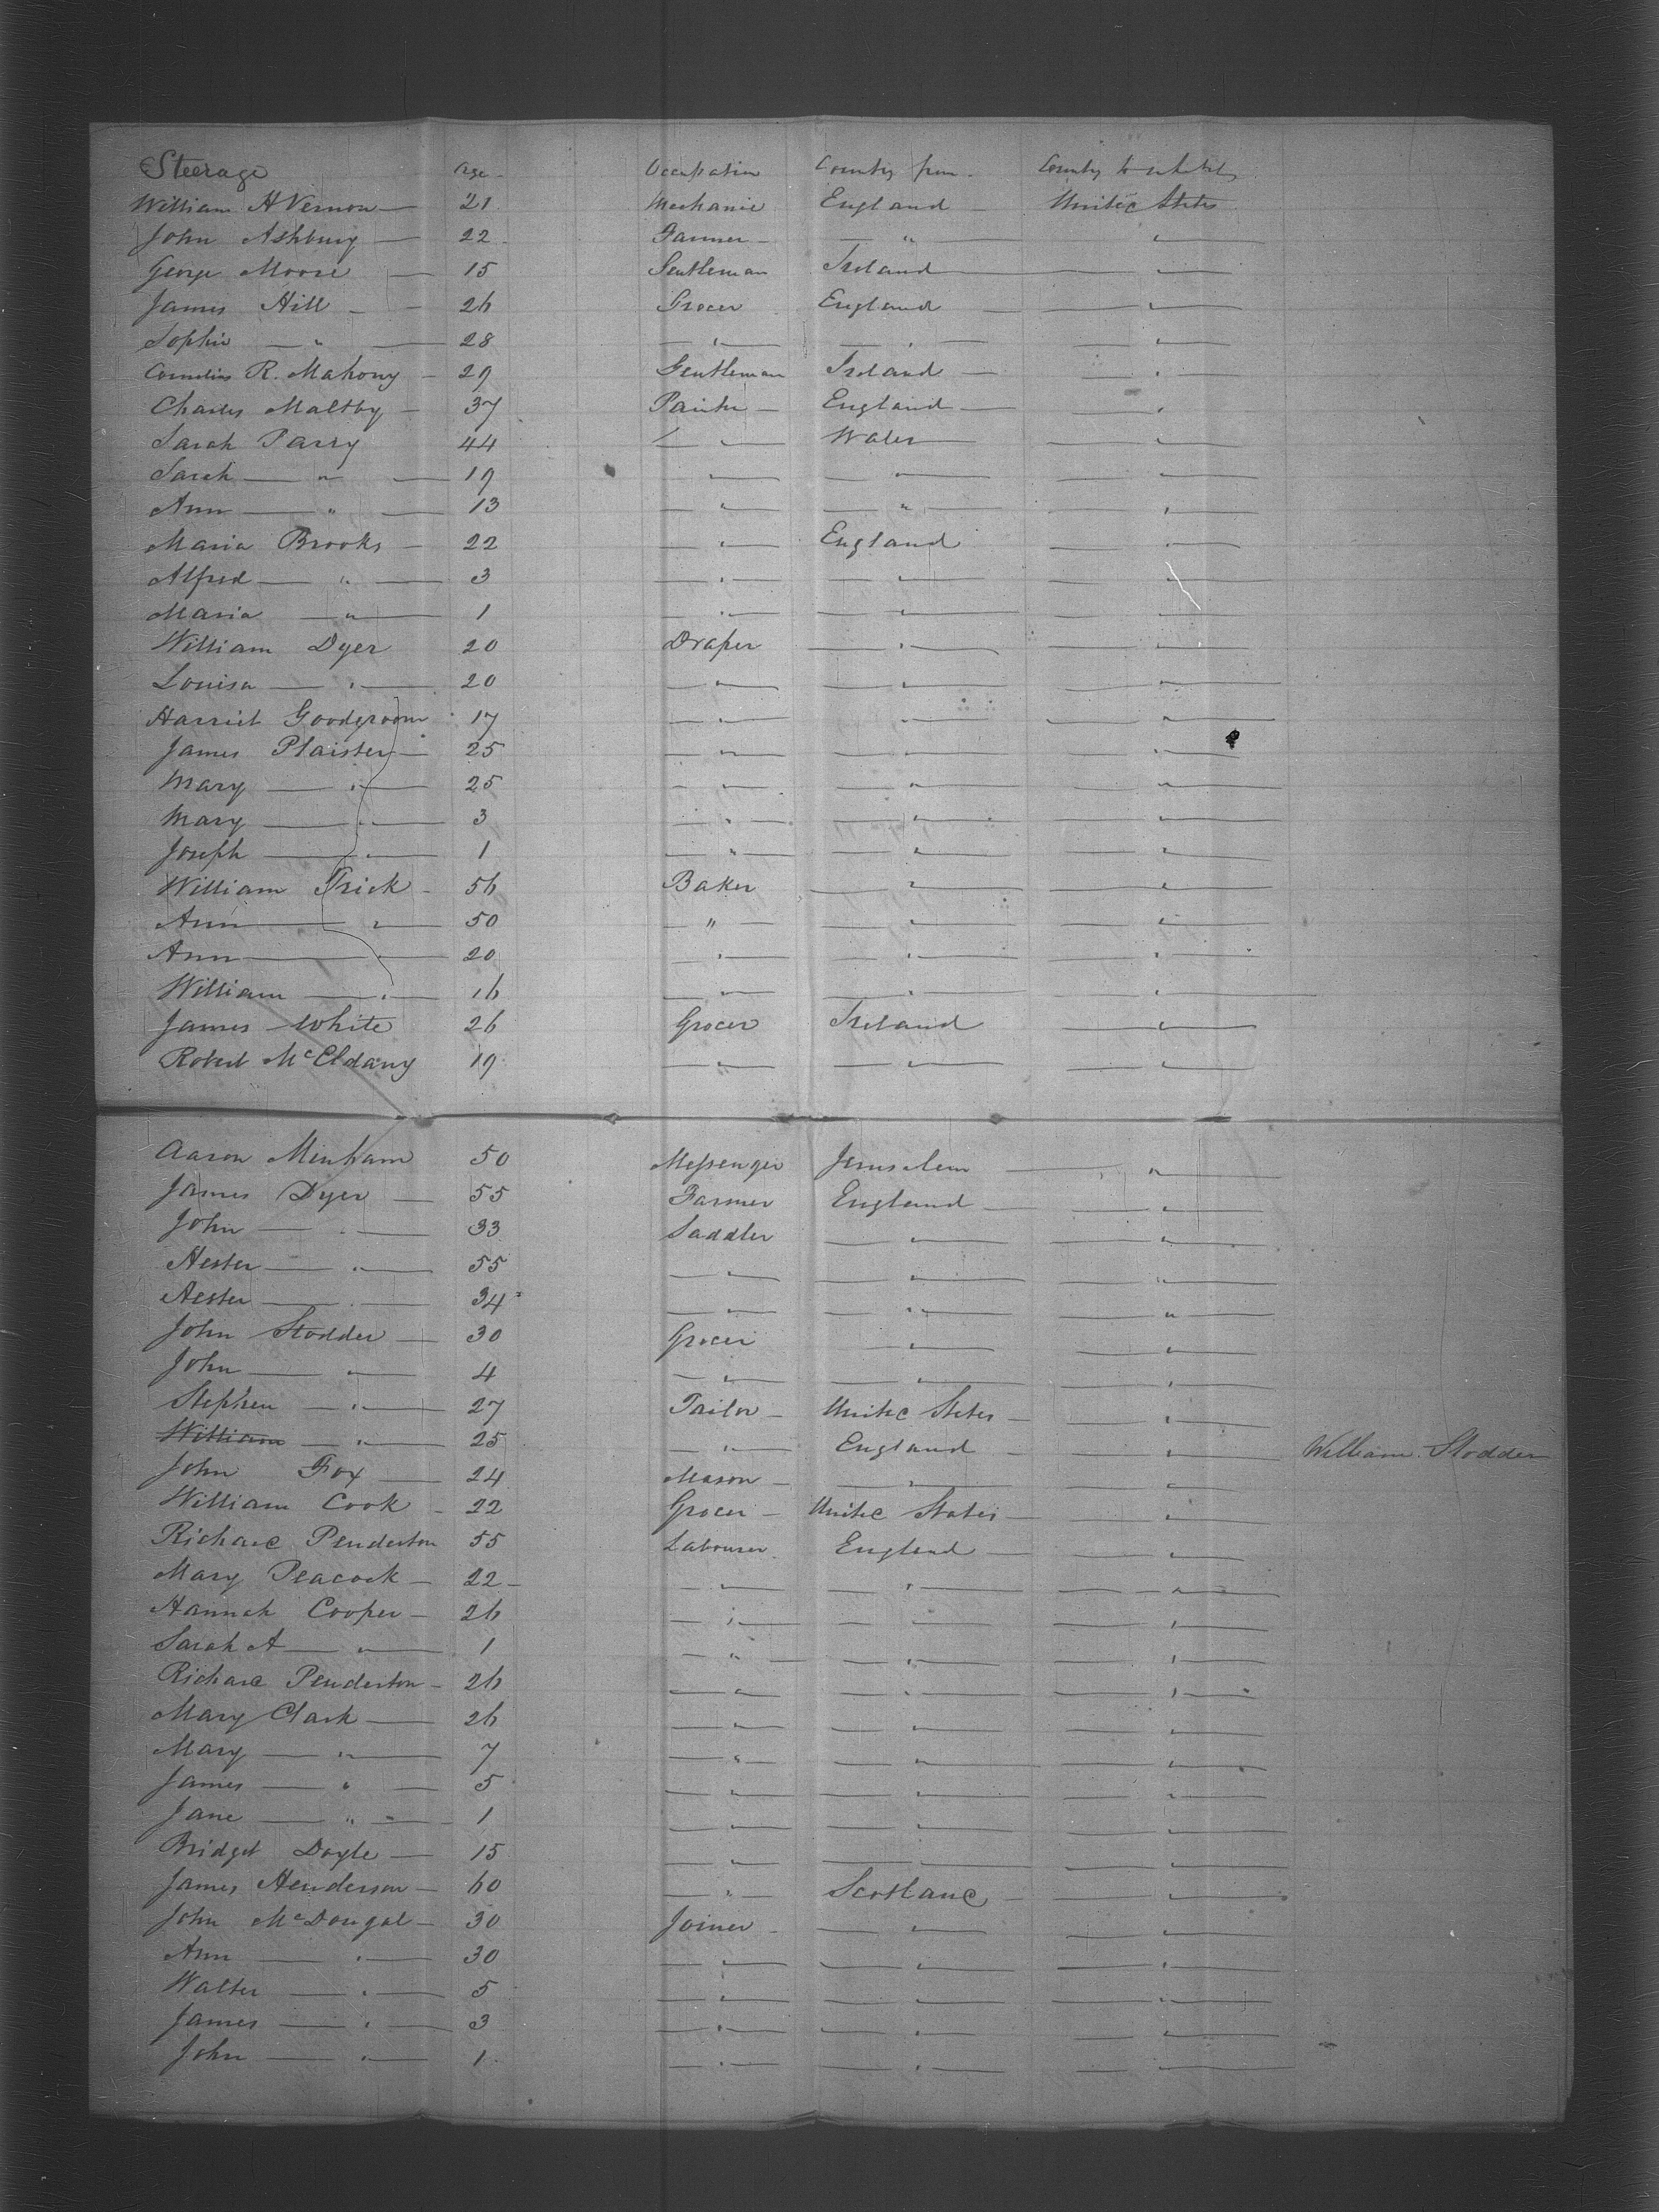 Steerage Age Occupation Country from Country to which
William H Vernon — 21 Mechanic England — United States
John Ashbury — 22 Farmer — — " — — " —
George Moore — 15 Gentleman Ireland — " —
James Hill — 26 Grocer England — — " —
Sophie — " — 28 — " — — " — — " —
Cornelius R. Mahony — 29 Gentleman Ireland — — " —
Charles Maltby — 37 Painter — England — "
Sarah Parry 44 — " — Wales — " —
Sarah — " — 19 — " — — " — — " —
Ann — " — 13 — " — — " — — " —
Maria Brooks — 22 — " — England — " —
Alfred — " — 3 — " — — " — — " —
Maria — " — 1 — " — — " — — " —
William Dyer 20 Draper — " — — " —
Louisa — " — 20 — " — — " — — " —
Harriet Goodgroom 17 — " — — " — — " —
James Plaister — 25 — " — — " — — " —
Mary — " — 25 — " — — " — — " —
Mary — " — 3 — " — — " — — " —
Joseph — " — 1 — " — — " — — " —
William Trick — 56 Baker — " — — " —
Ann — " — 50 — " — — " — — " —
Ann — " — 20 — " — — " — — " —
William — " — 16 — " — — " — — " —
James White 26 Grocer Ireland — " —
Robert McEldany 19 — " — — " — — " —
Aaron Minham 50 Messenger Jerusalem — " —
James Dyer — 55 Farmer England — — " —
John — " — 33 Saddler — " — — " —
Hester — " — 55 — " — — " — — " —
Hester — " — 34 — " — — " — — " —
John Stodder — 30 Grocer — " — — " —
John — " — 4 — " — — " — — " —
Stephen — " — 27 Tailor — United States — — " —
William — " — 25 — " — England — — " — William Stodder
John Fox — 24 Mason — — " — — " —
William Cook — 22 Grocer — United States — — " —
Richard Penderton 55 Labourer England — — " —
Mary Peacock — 22 — — " — — " — — " —
Hannah Cooper — 26 — " — — " — — " —
Sarah A — " — 1 — " — — " — — " —
Richard Penderton — 26 — " — — " — — " —
Mary Clark — 26 — " — — " — — " —
Mary — " — 7 — " — — " — — " —
James — " — 5 — " — — " — — " —
Jane — " — 1 — " — — " — — " —
Bridget Doyle — 15 — " — — " — — " —
James Henderson — 60 — " — Scotland — — " —
John McDougal — 30 Joiner — — " — — " —
Ann — " — 30 — " — — " — — " —
Walter — " — 5 — " — — " — — " —
James — " — 3 — " — — " — — " —
John — " — 1 — " — — " — — " —